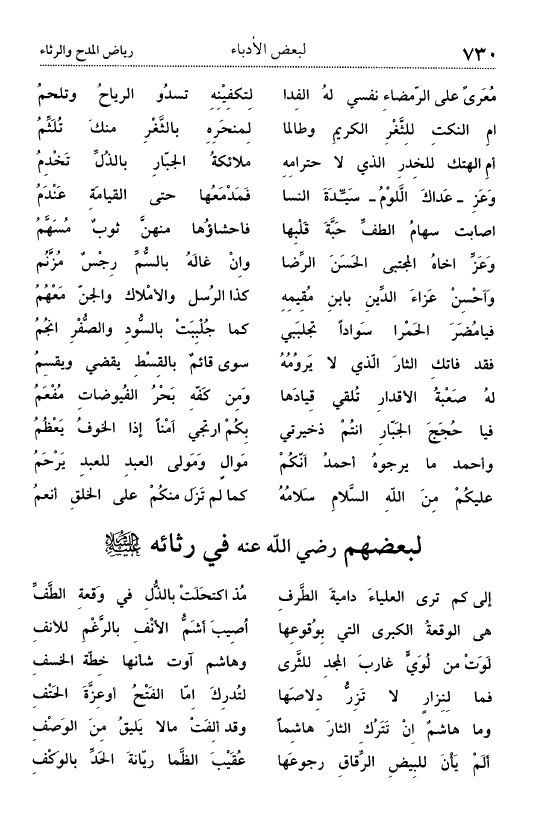 ٧٣٠ لبعض الأدباء رياض المدح والرثاء
مُعَرىً على الرّمضاء نفسي لهُ الفدا لتكفيْنِهِ تسدُو الرياحُ وتلحمُ
ام النكت للثَّغْرِ الكريم وطالما لمنحَرِه بالثَّغْرِ منكَ تُلَثَّمُ
أم الهتك للخدر الذي لا حترامهِ ملائكةُ الجبّار بالذُلِّ تَخْدِمُ
وَعَزِ ـ عَداكَ اللَّومُ ـ سَيِّدَةَ النسا فَمَدْمَعُها حتى القيامَةِ عَنْدَمُ
اصابت سهامُ الطفِّ حبَّةَ قَلْبِها فأحشاؤُها منهنَّ ثوبٌ مُسَهَّمُ
وَعَزِّ اخاهُ المجتبى الحَسَنَ الرِّضا وانْ غالَهُ بالسُّمِّ رِجْسٌ مُزَنَّمُ
وَاَحْسِنْ عَزاءَ الدِّينِ بابنِ مُقيمِهِ كذا الرُسل والأمْلاك والجنّ مَعْهُمُ
فيامُضَرَ الحَمْرا سَواداً تجلبَبي كما جُلْبِبَتْ بالسُّودِ والصُّفْرِ انجُمُ
فقد فاتكِ الثارَ الّذي لا يَرومُهُ سوى قائمٌ بالقِسْطِ يقضي ويقسِمُ
لهُ صَعْبَةُ الاقدارِ تُلقي قيادَها وَمِن كفِّهِ بَحْرُ الفيوضاتِ مُفْعَمُ
فيا حُجَجَ الجَبّارِ انتُمْ ذخيرتي بِكُمْ ارتجي أمْناً إذا الخوفُ يَعْظُمُ
وأحمد ما يرجوهُ أحمدُ أنّكمْ مَوالٍ وَمَولى العبدِ للعبدِ يَرْحَمُ
عليكُمْ مِنَ اللّهِ السَّلامِ سَلامُهُ كما لم تَزَل منكُمْ على الخلقِ أنعمُ
لبعضهم رضي اللّه عنه في رثائه عليه السلام
إلى كم ترى العلياءَ داميةَ الطَّرفِ مُذ اكتحلَتْ بالذُّل في وَقعةِ الطَّفِّ
هى الوقعةُ الكبرى التي بِوُقوعِها أصيبَ أشمُّ الأنْفِ بالرَّغْمِ للانف
لَوَتْ من لُوَيٍّ غاربَ المجدِ للثَّرى وهاشم آوت شأنها خطّة الخسف
فما لِنِزار لا تَزرُّ دلاصَها لتُدركَ امّا الفَتْحُ أوعزَّةَ الحَتْفِ
وما هاشمٌ انْ تَتَرُكِ الثارَ هاشماً وقد الفَتْ مالا يَليقُ مِنَ الوَصْفِ
ألَمْ يَأنَ للبيضِ الرِّقاقِ رجوعَها عُقَيْبَ الظَّما ريّانةَ الحَدِّ بالوَكْفِ